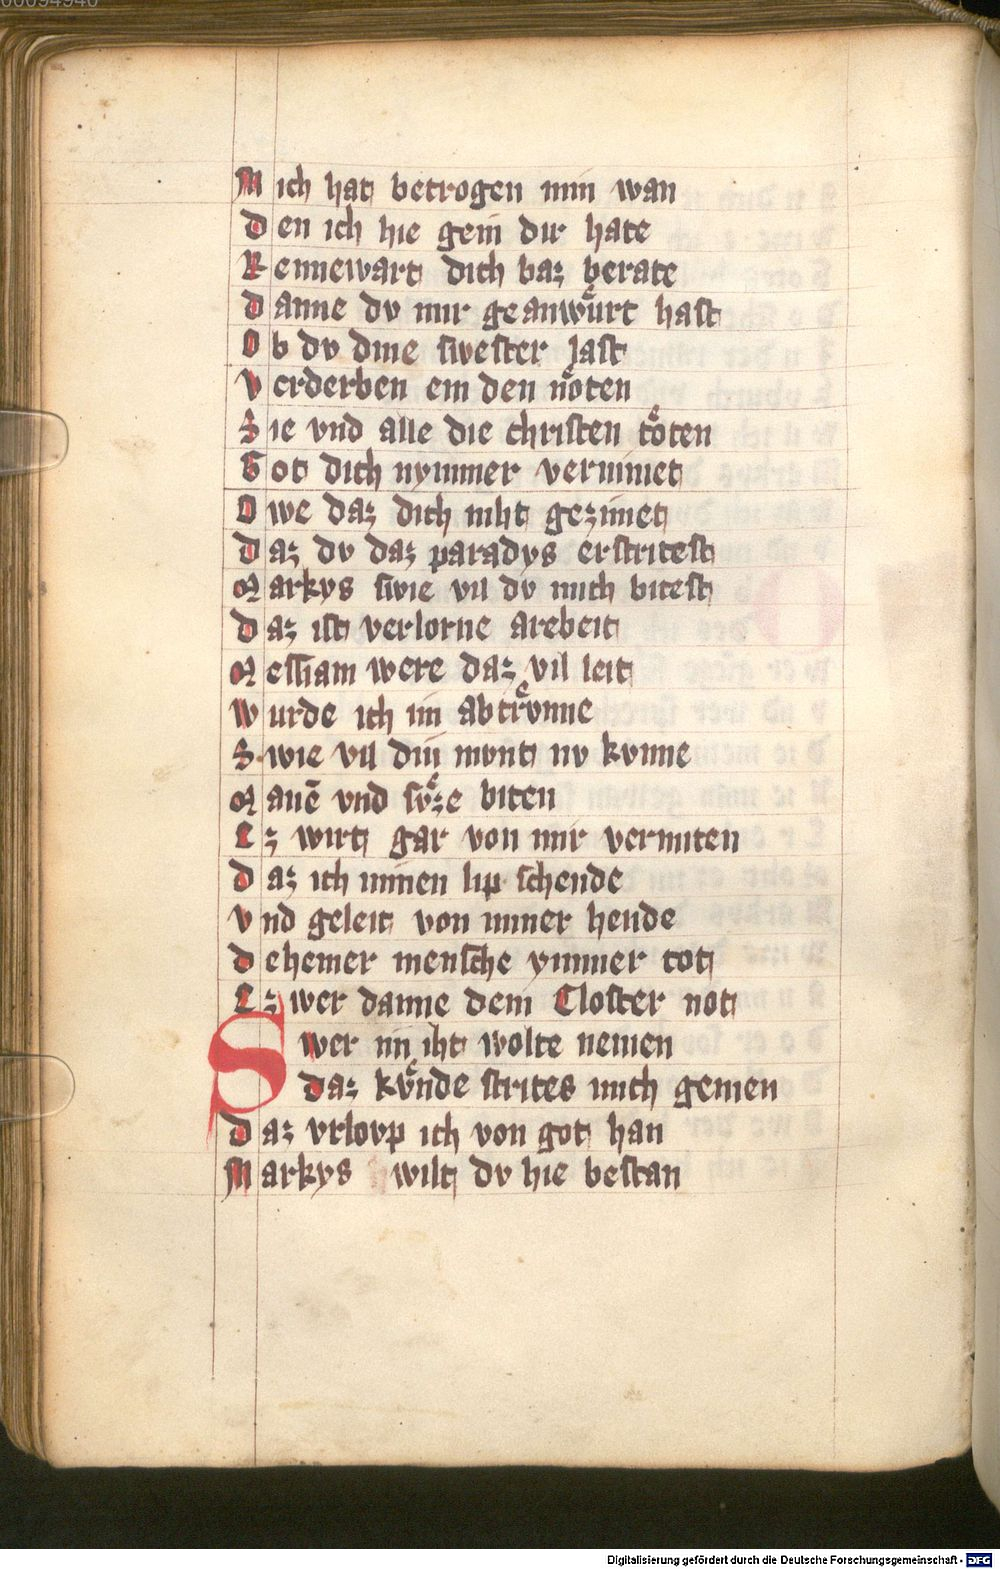 00094946
Mich hat betrogen min wan
Den ich hie gein dir hate
Rennewart dich baz berate
Danne dv mir geanwuͤrt hast
Ob dv dine swester last
Verderben ein den noͤten
Sie vnd alle die christen toͤten
Got dich nymmer vernimet
Owe daz dich niht gezimet
Daz dv daz paradys erstritest
Markys swie vil dv mich bitest
Daz ist verlorne arebeit
Messiam were daz vil leit
Wurde ich im abtrvͤnne
Swie vil din mvnt nv kvnne
Manē vnd svͤze biten
Ez wirt gar von mir vermiten
Daz ich minen lip schende
Vnd geleit von miner hende
Dehemer mensche ymmer tot
Ez wer danne dem Closter not
Swer im iht wolte nemen
Daz kvͤnde strites mich gemen
Daz vrlovp ich von got han
Markys wilt dv hie bestan
Digitalisierung gefördert durch die Deutsche Forschungsgemeinschaft - DFG